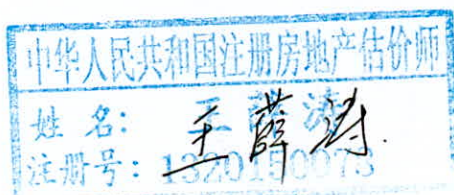 中华人民共和国注册房地产估价师
姓 名: 王薛涛
注册号: 1320190073